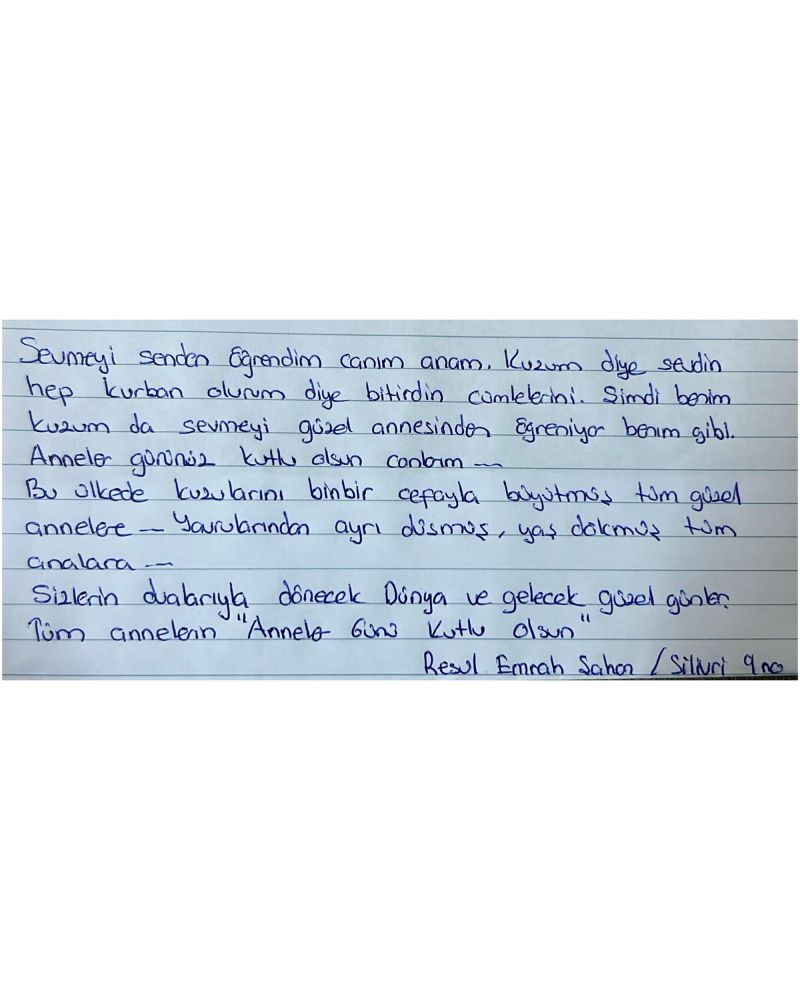 Sevmeyi senden öğrendim canım anam. Kuzum diye sevdin
hep kurban olurum diye bitirdin cümlelerini. Şimdi benim
kuzum da sevmeyi güzel annesinden öğreniyor benim gibi.
Anneler gününüz kutlu olsun canlarım —
Bu ülkede kuzularını binbir cefayla büyütmüş tüm güzel
annelere — Yavrularından ayrı düşmüş, yaş dökmüş tüm
analara —
Sizlerin dualarıyla dönecek Dünya ve gelecek güzel günler.
Tüm annelerin "Anneler Günü Kutlu Olsun"
Resul Emrah Şahan / Silivri 9 no